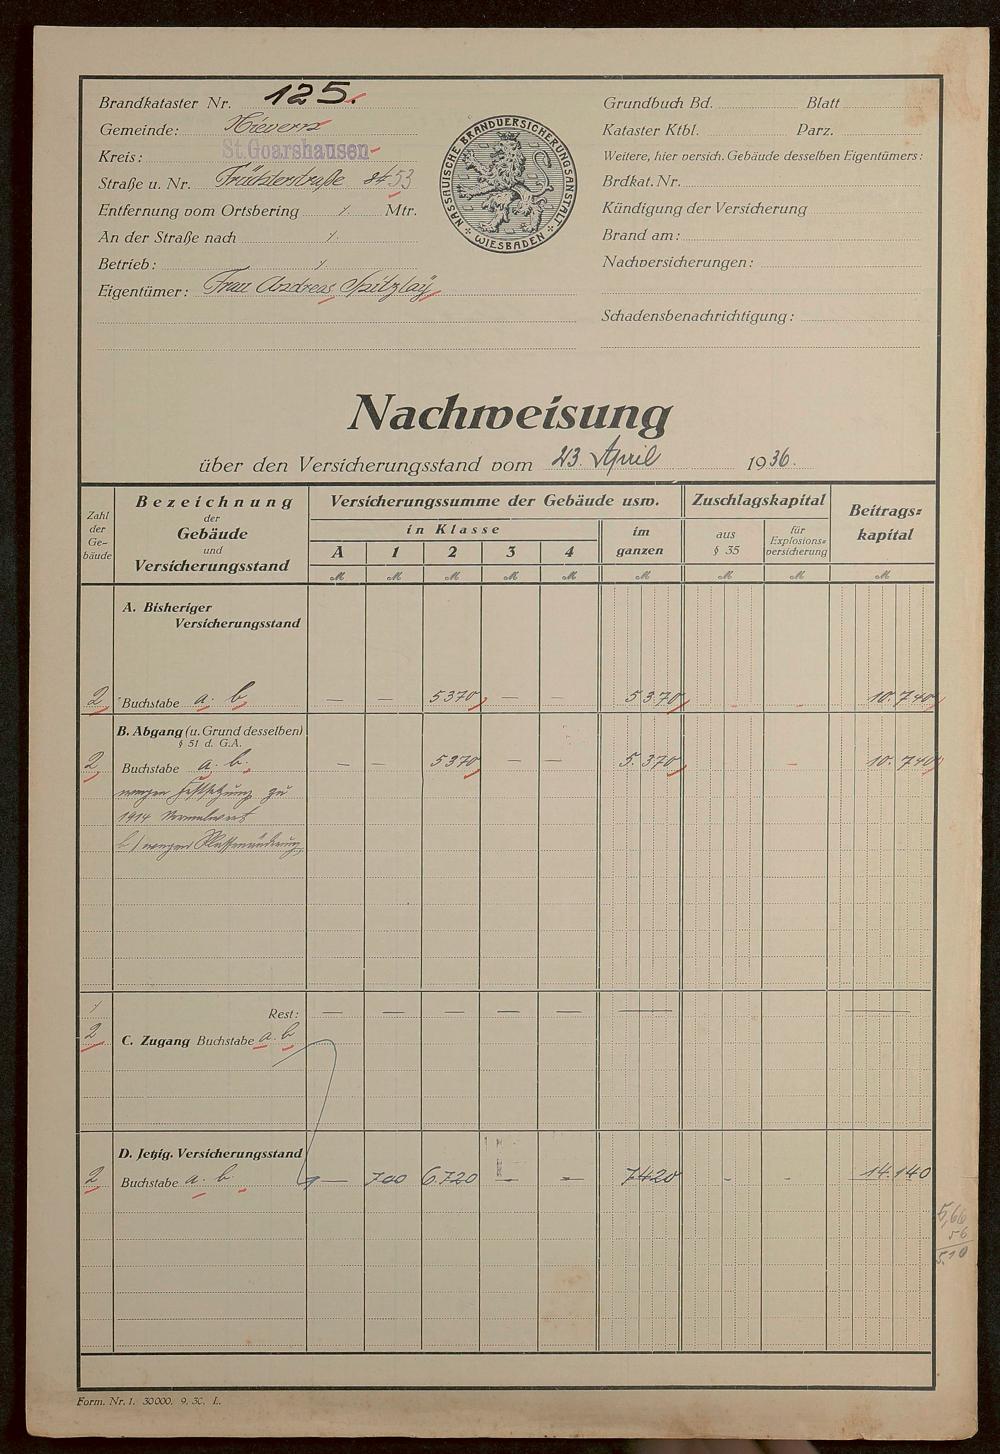 Brandkataster Nr. 125.
Gemeinde: Nievern
Kreis: St. Goarshausen
Straße u. Nr. 53
Entfernung vom Ortsbering Mtr.
An der Straße nach
Betrieb:
Eigentümer: Frau Andreas
NASSAUISCHE BRANDVERSICHERUNGSANSTALT
WIESBADEN
Grundbuch Bd. Blatt
Kataster Ktbl. Parz.
Weitere, hier versich. Gebäude desselben Eigentümers:
Brdkat. Nr.
Kündigung der Versicherung
Brand am:
Nachversicherungen:
Schadensbenachrichtigung:
Nachweisung
über den Versicherungsstand vom 23. April 1936.
Zahl der Ge-bäude
Bezeichnung der Gebäude und Versicherungsstand
Versicherungssumme der Gebäude usw.
in Klasse
A 1 2 3 4
im ganzen
Zuschlagskapital
aus § 35
für Explosions-versicherung
Beitrags-kapital
ℳ ℳ ℳ ℳ ℳ ℳ ℳ ℳ ℳ
A. Bisheriger
Versicherungsstand
2 Buchstabe a. b. — — 5370 — — 5370 - - 10.740
B. Abgang (u. Grund desselben)
§ 51 d. G.A.
2 Buchstabe a. b. — — 5370 — — 5.370 - 10.740
wegen Festsetzung zu
1914 Normalwert
b/ wegen Klassenänderung
Rest: — — — — — — —
2 C. Zugang Buchstabe a. b
D. Jetzig. Versicherungsstand
2 Buchstabe a. b. — 700 6.720 — — 7420 - - 14.140
5,66
56
5.10
Form. Nr. 1. 30000. 9. 30. L.